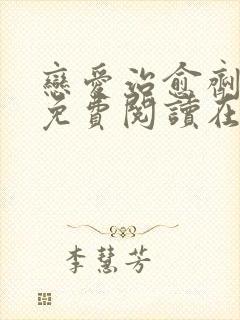 戀愛治愈劑
免費閱讀在
李慧芳